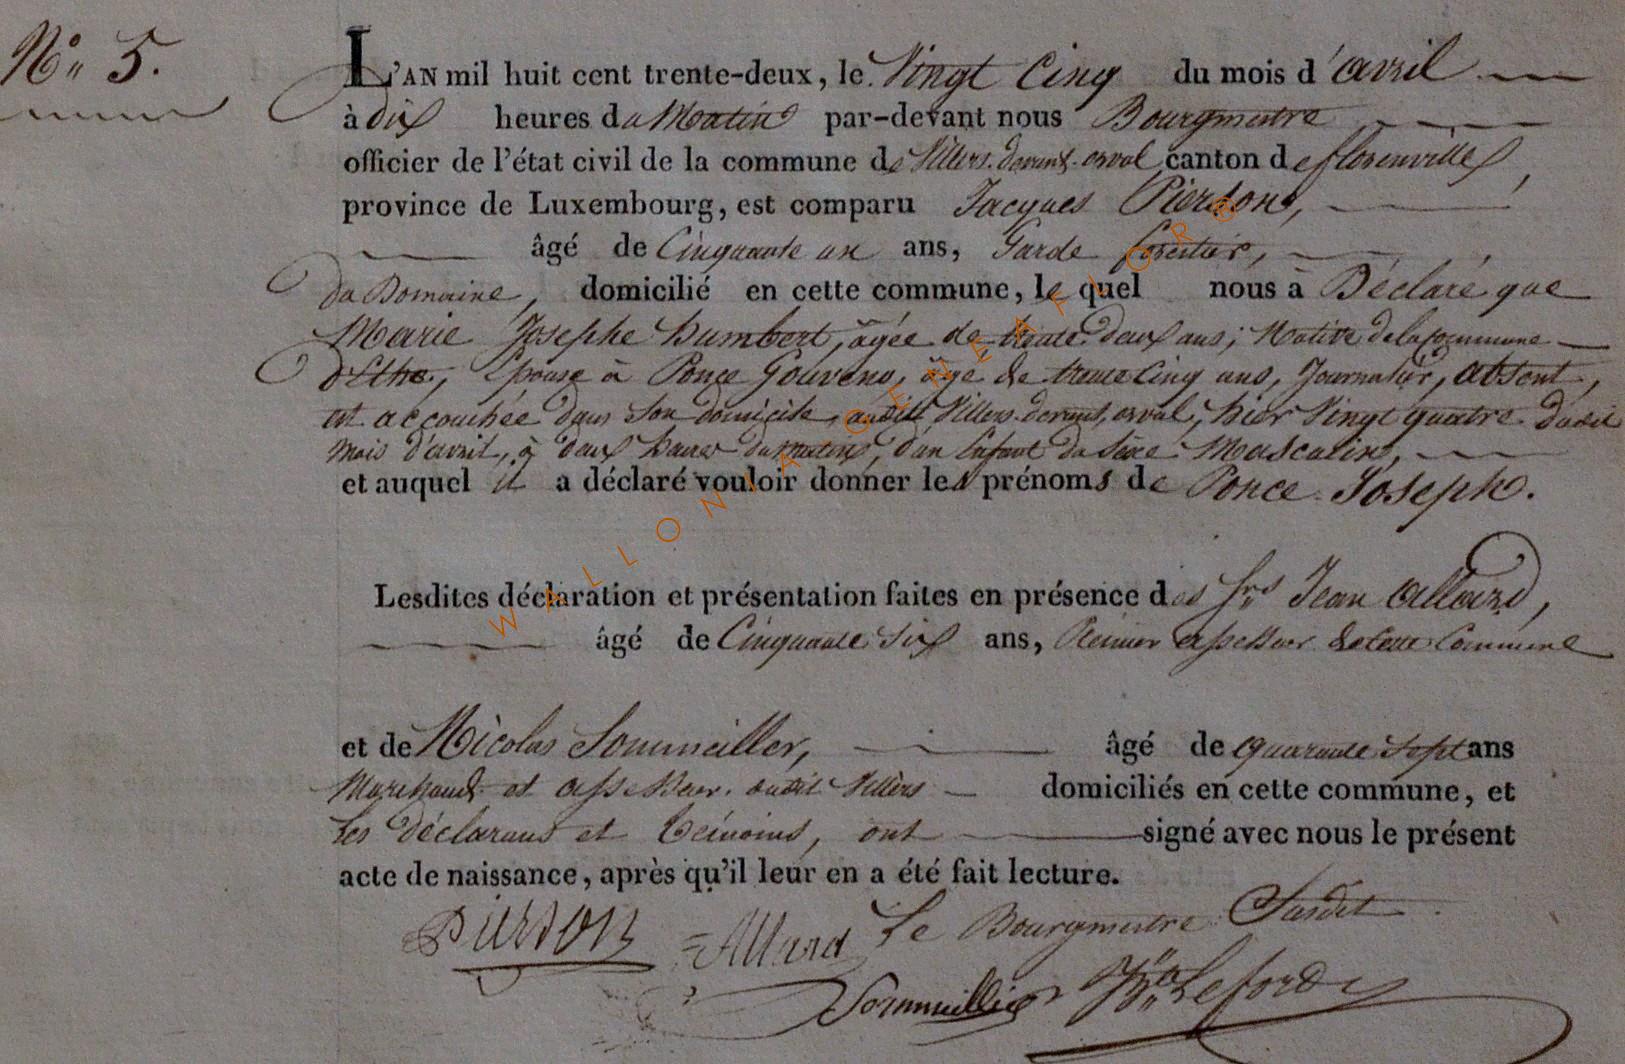 N° 5.
L'AN mil huit cent trente-deux, le Vingt Cinq du mois d'avril
à dix heures du Matin par-devant nous Bourgmestre
officier de l'état civil de la commune de Villers-devant-orval canton de florenville,
province de Luxembourg, est comparu Jacques Pierson,
âgé de Cinquante un ans, Garde forestier,
du Domaine, domicilié en cette commune, le quel nous à Déclaré que
Marie Josephe humbert, âgée de trente deux ans, Native de la Commune
d'Ethe, Epouse à Ponce Gouverno, âge de trente Cinq ans, Journalier, absent,
est accouchée dans Son domicile, audit Villers-devant-orval, hier Vingt quatre dudit
mois d'avril, à deux heures du matin, d'un Enfant du Sèxe Masculin,
et auquel il a déclaré vouloir donner les prénoms de Ponce Joseph.
Lesdites déclaration et présentation faites en présence des Srs Jean Allard,
âgé de Cinquante Six ans, Premier assesseur de Cette Commune
et de Nicolas Sommeiller, âgé de quarante Sept ans
Marchand et assesseur audit Villers domiciliés en cette commune, et
les déclarans et témoins, ont signé avec nous le présent
acte de naissance, après qu'il leur en a été fait lecture.
Pierson Allard Le Bourgmestre Susdit
Sommeillier Leford
WALLONIA GENEAFLOR®